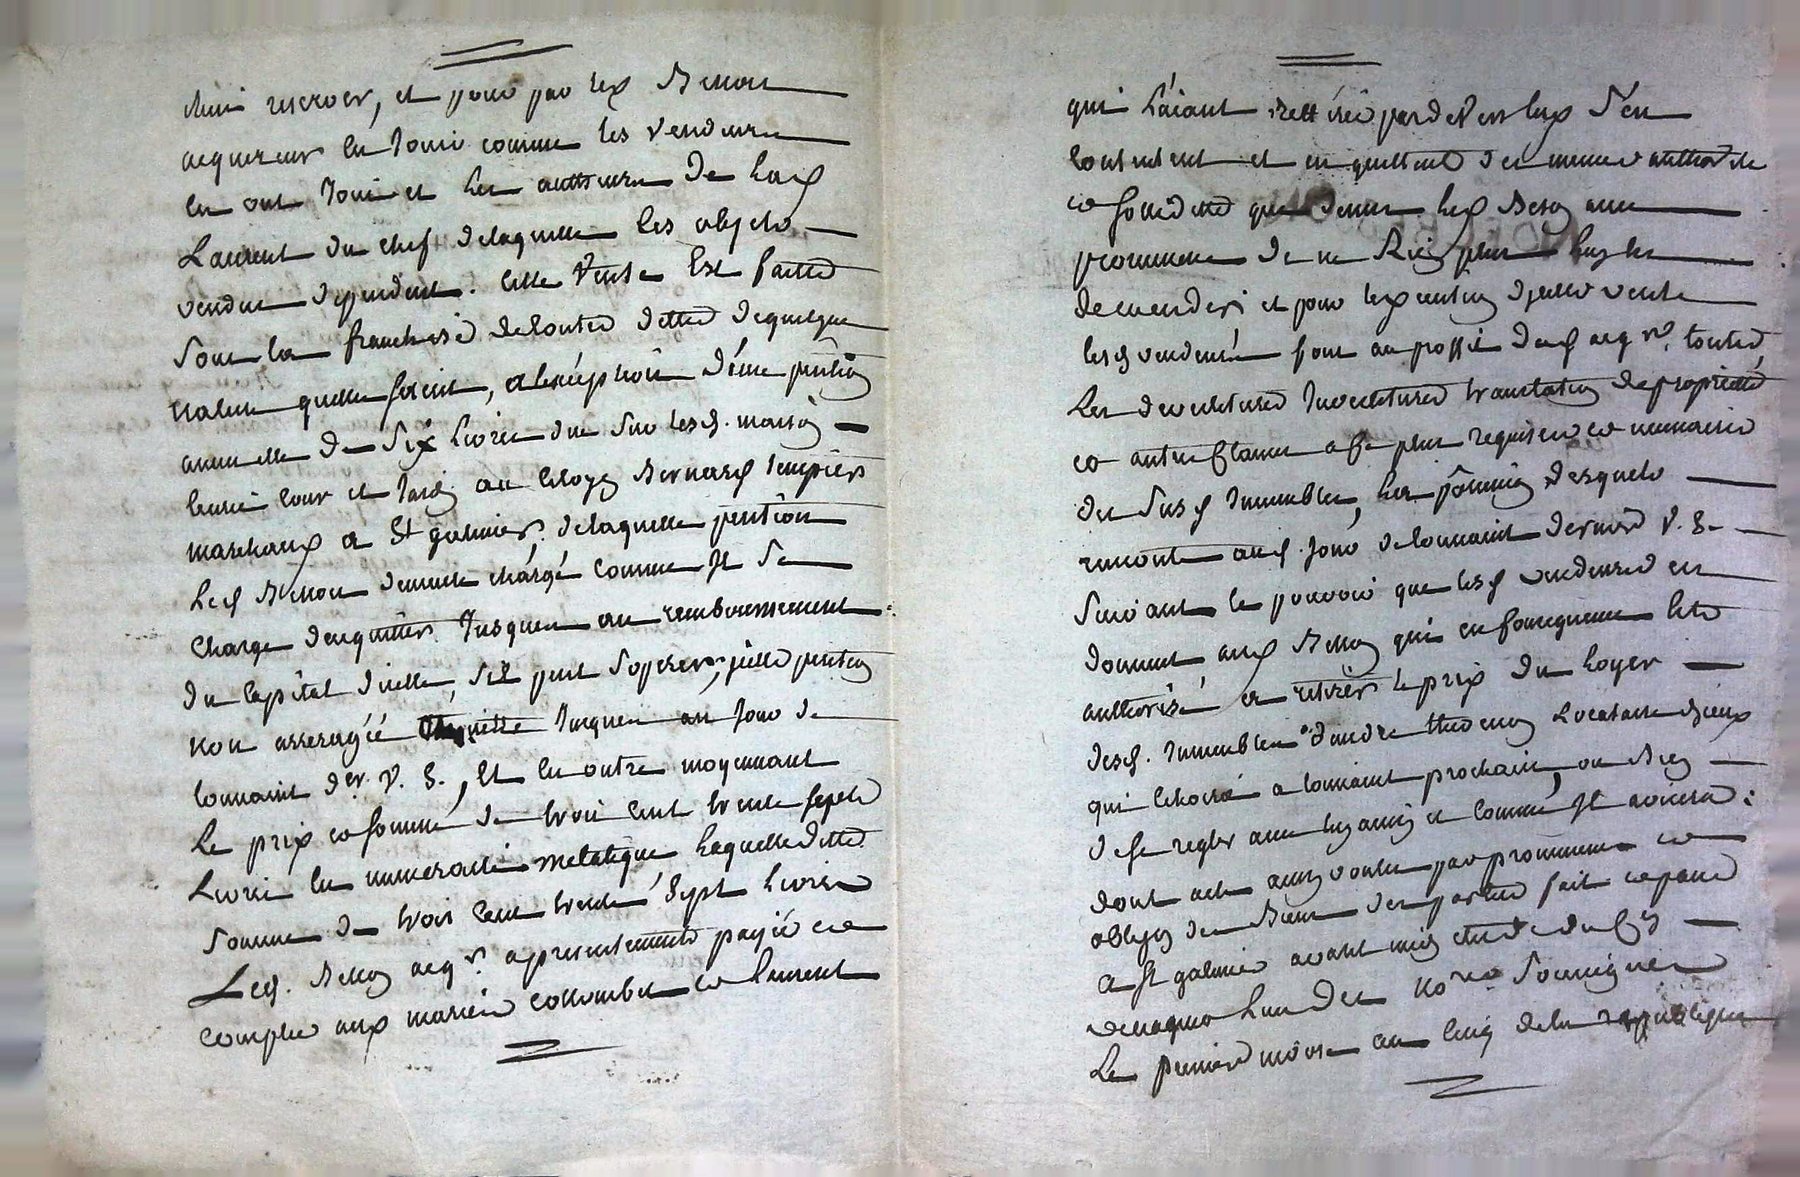 rien reserver, et pour par les Benoit
acquereur en Jouir comme les vendeurs
en ont Joui et les autheurs de lad
Laurent du chef delaquelle les objets
vendus dependent. Cette vente Est faitte
sous la franchise de toutes dettes dequelque
nature quelles soient, a lexception d'une pention
annuelle de Six Livres due sur lesd. maison
Curie Cour et Jardin au Citoyen Bernard tempier
marchand a St galmier, delaquelle pention
Led Benoit demeure chargé comme Il Se
Charge d'acquitter Jusques au remboursement
du Capital d'icelle, Sil peut Soperer, jcelle pention
non arreragée Jusques au Jour de
toussaint der. V. S., Et en outre moyennant
Le prix et somme de trois Cent trente sept
Livres En numeraire metalique Laquelle ditte
Somme de trois Cent trente Sept Livres
Led. Benoit acqr. a presentement payée et
Comptée aux mariés collombet et laurent
qui Laiant rettirée pardevers Eux S'en
Contentent et en quittent de meme authorité
et solidité que dessus led Benoit avec
promesse de ne Rien plus luy en
demander et pour lexecution djcelle vente
lesd vendeurs font au proffit dud acqr. touttes
Les devestitures Investitures translation depropriette
et autres Clauses a ce plus requises et necessaires
des Susd Immeubles, Les
remonte aud. Jour de toussaint dernier V. S.
Suivant le pouvoir que lesd vendeurs en
donnent aud Benoit qui en sera
authorisé a retirer le prix du Loyer
desd. Immeubles d'andre Locataire djceux
qui Echoira a toussaint prochain, ou Bien
de se regler avec luy ainsi et comme Il avisera:
dont acte ainsy voulu par promesses et
obligation de Biens des parties fait et passé
a St galmier avant midy etude du
Le premier au Cinq de la republique